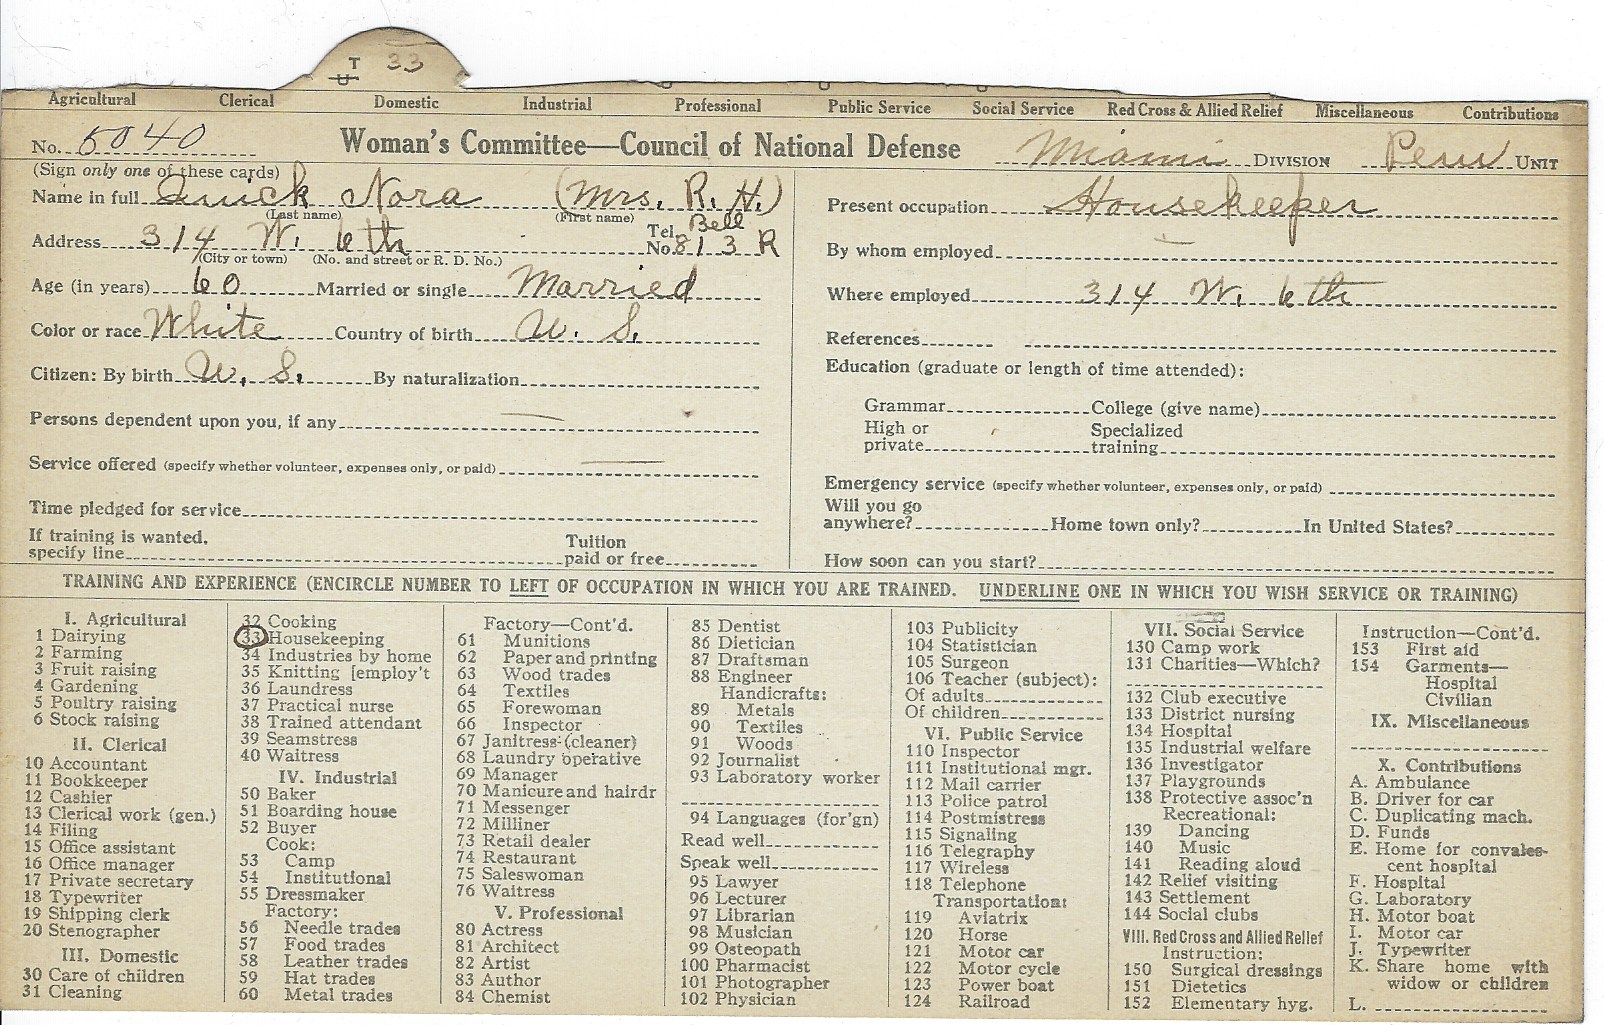 T 33
U
Agricultural Clerical Domestic Industrial Professional Public Service Social Service Red Cross & Allied Relief Miscellaneous Contributions
No. 5040 Woman's Committee—Council of National Defense Miami DIVISION Peru UNIT
(Sign only one of these cards)
Name in full Quick Nora (Mrs. R. H.)
(Last name) (First name)
Address 314 W. 6th Tel. No. Bell 813 R
(City or town) (No. and street or R. D. No.)
Age (in years) 60 Married or single Married
Color or race White Country of birth U. S.
Citizen: By birth U. S. By naturalization
Persons dependent upon you, if any —
Service offered (specify whether volunteer, expenses only, or paid) —
Time pledged for service
If training is wanted,
specify line Tuition paid or free
Present occupation Housekeeper
By whom employed —
Where employed 314 W. 6th
References
Education (graduate or length of time attended):
Grammar College (give name)
High or private Specialized training
Emergency service (specify whether volunteer, expenses only, or paid)
Will you go
anywhere? Home town only? In United States?
How soon can you start?
TRAINING AND EXPERIENCE (ENCIRCLE NUMBER TO LEFT OF OCCUPATION IN WHICH YOU ARE TRAINED. UNDERLINE ONE IN WHICH YOU WISH SERVICE OR TRAINING)
I. Agricultural
1 Dairying
2 Farming
3 Fruit raising
4 Gardening
5 Poultry raising
6 Stock raising
II. Clerical
10 Accountant
11 Bookkeeper
12 Cashier
13 Clerical work (gen.)
14 Filing
15 Office assistant
16 Office manager
17 Private secretary
18 Typewriter
19 Shipping clerk
20 Stenographer
III. Domestic
30 Care of children
31 Cleaning
32 Cooking
33 Housekeeping
34 Industries by home
35 Knitting [employ't
36 Laundress
37 Practical nurse
38 Trained attendant
39 Seamstress
40 Waitress
IV. Industrial
50 Baker
51 Boarding house
52 Buyer
Cook:
53 Camp
54 Institutional
55 Dressmaker
Factory:
56 Needle trades
57 Food trades
58 Leather trades
59 Hat trades
60 Metal trades
Factory—Cont'd.
61 Munitions
62 Paper and printing
63 Wood trades
64 Textiles
65 Forewoman
66 Inspector
67 Janitress (cleaner)
68 Laundry operative
69 Manager
70 Manicure and hairdr
71 Messenger
72 Milliner
73 Retail dealer
74 Restaurant
75 Saleswoman
76 Waitress
V. Professional
80 Actress
81 Architect
82 Artist
83 Author
84 Chemist
85 Dentist
86 Dietician
87 Draftsman
88 Engineer
Handicrafts:
89 Metals
90 Textiles
91 Woods
92 Journalist
93 Laboratory worker
94 Languages (for'gn)
Read well
Speak well
95 Lawyer
96 Lecturer
97 Librarian
98 Musician
99 Osteopath
100 Pharmacist
101 Photographer
102 Physician
103 Publicity
104 Statistician
105 Surgeon
106 Teacher (subject):
Of adults
Of children
VI. Public Service
110 Inspector
111 Institutional mgr.
112 Mail carrier
113 Police patrol
114 Postmistress
115 Signaling
116 Telegraphy
117 Wireless
118 Telephone
Transportation:
119 Aviatrix
120 Horse
121 Motor car
122 Motor cycle
123 Power boat
124 Railroad
VII. Social Service
130 Camp work
131 Charities—Which?
132 Club executive
133 District nursing
134 Hospital
135 Industrial welfare
136 Investigator
137 Playgrounds
138 Protective assoc'n
Recreational:
139 Dancing
140 Music
141 Reading aloud
142 Relief visiting
143 Settlement
144 Social clubs
VIII. Red Cross and Allied Relief
Instruction:
150 Surgical dressings
151 Dietetics
152 Elementary hyg.
Instruction—Cont'd.
153 First aid
154 Garments—
Hospital
Civilian
IX. Miscellaneous
X. Contributions
A. Ambulance
B. Driver for car
C. Duplicating mach.
D. Funds
E. Home for convales-
cent hospital
F. Hospital
G. Laboratory
H. Motor boat
I. Motor car
J. Typewriter
K. Share home with
widow or children
L.